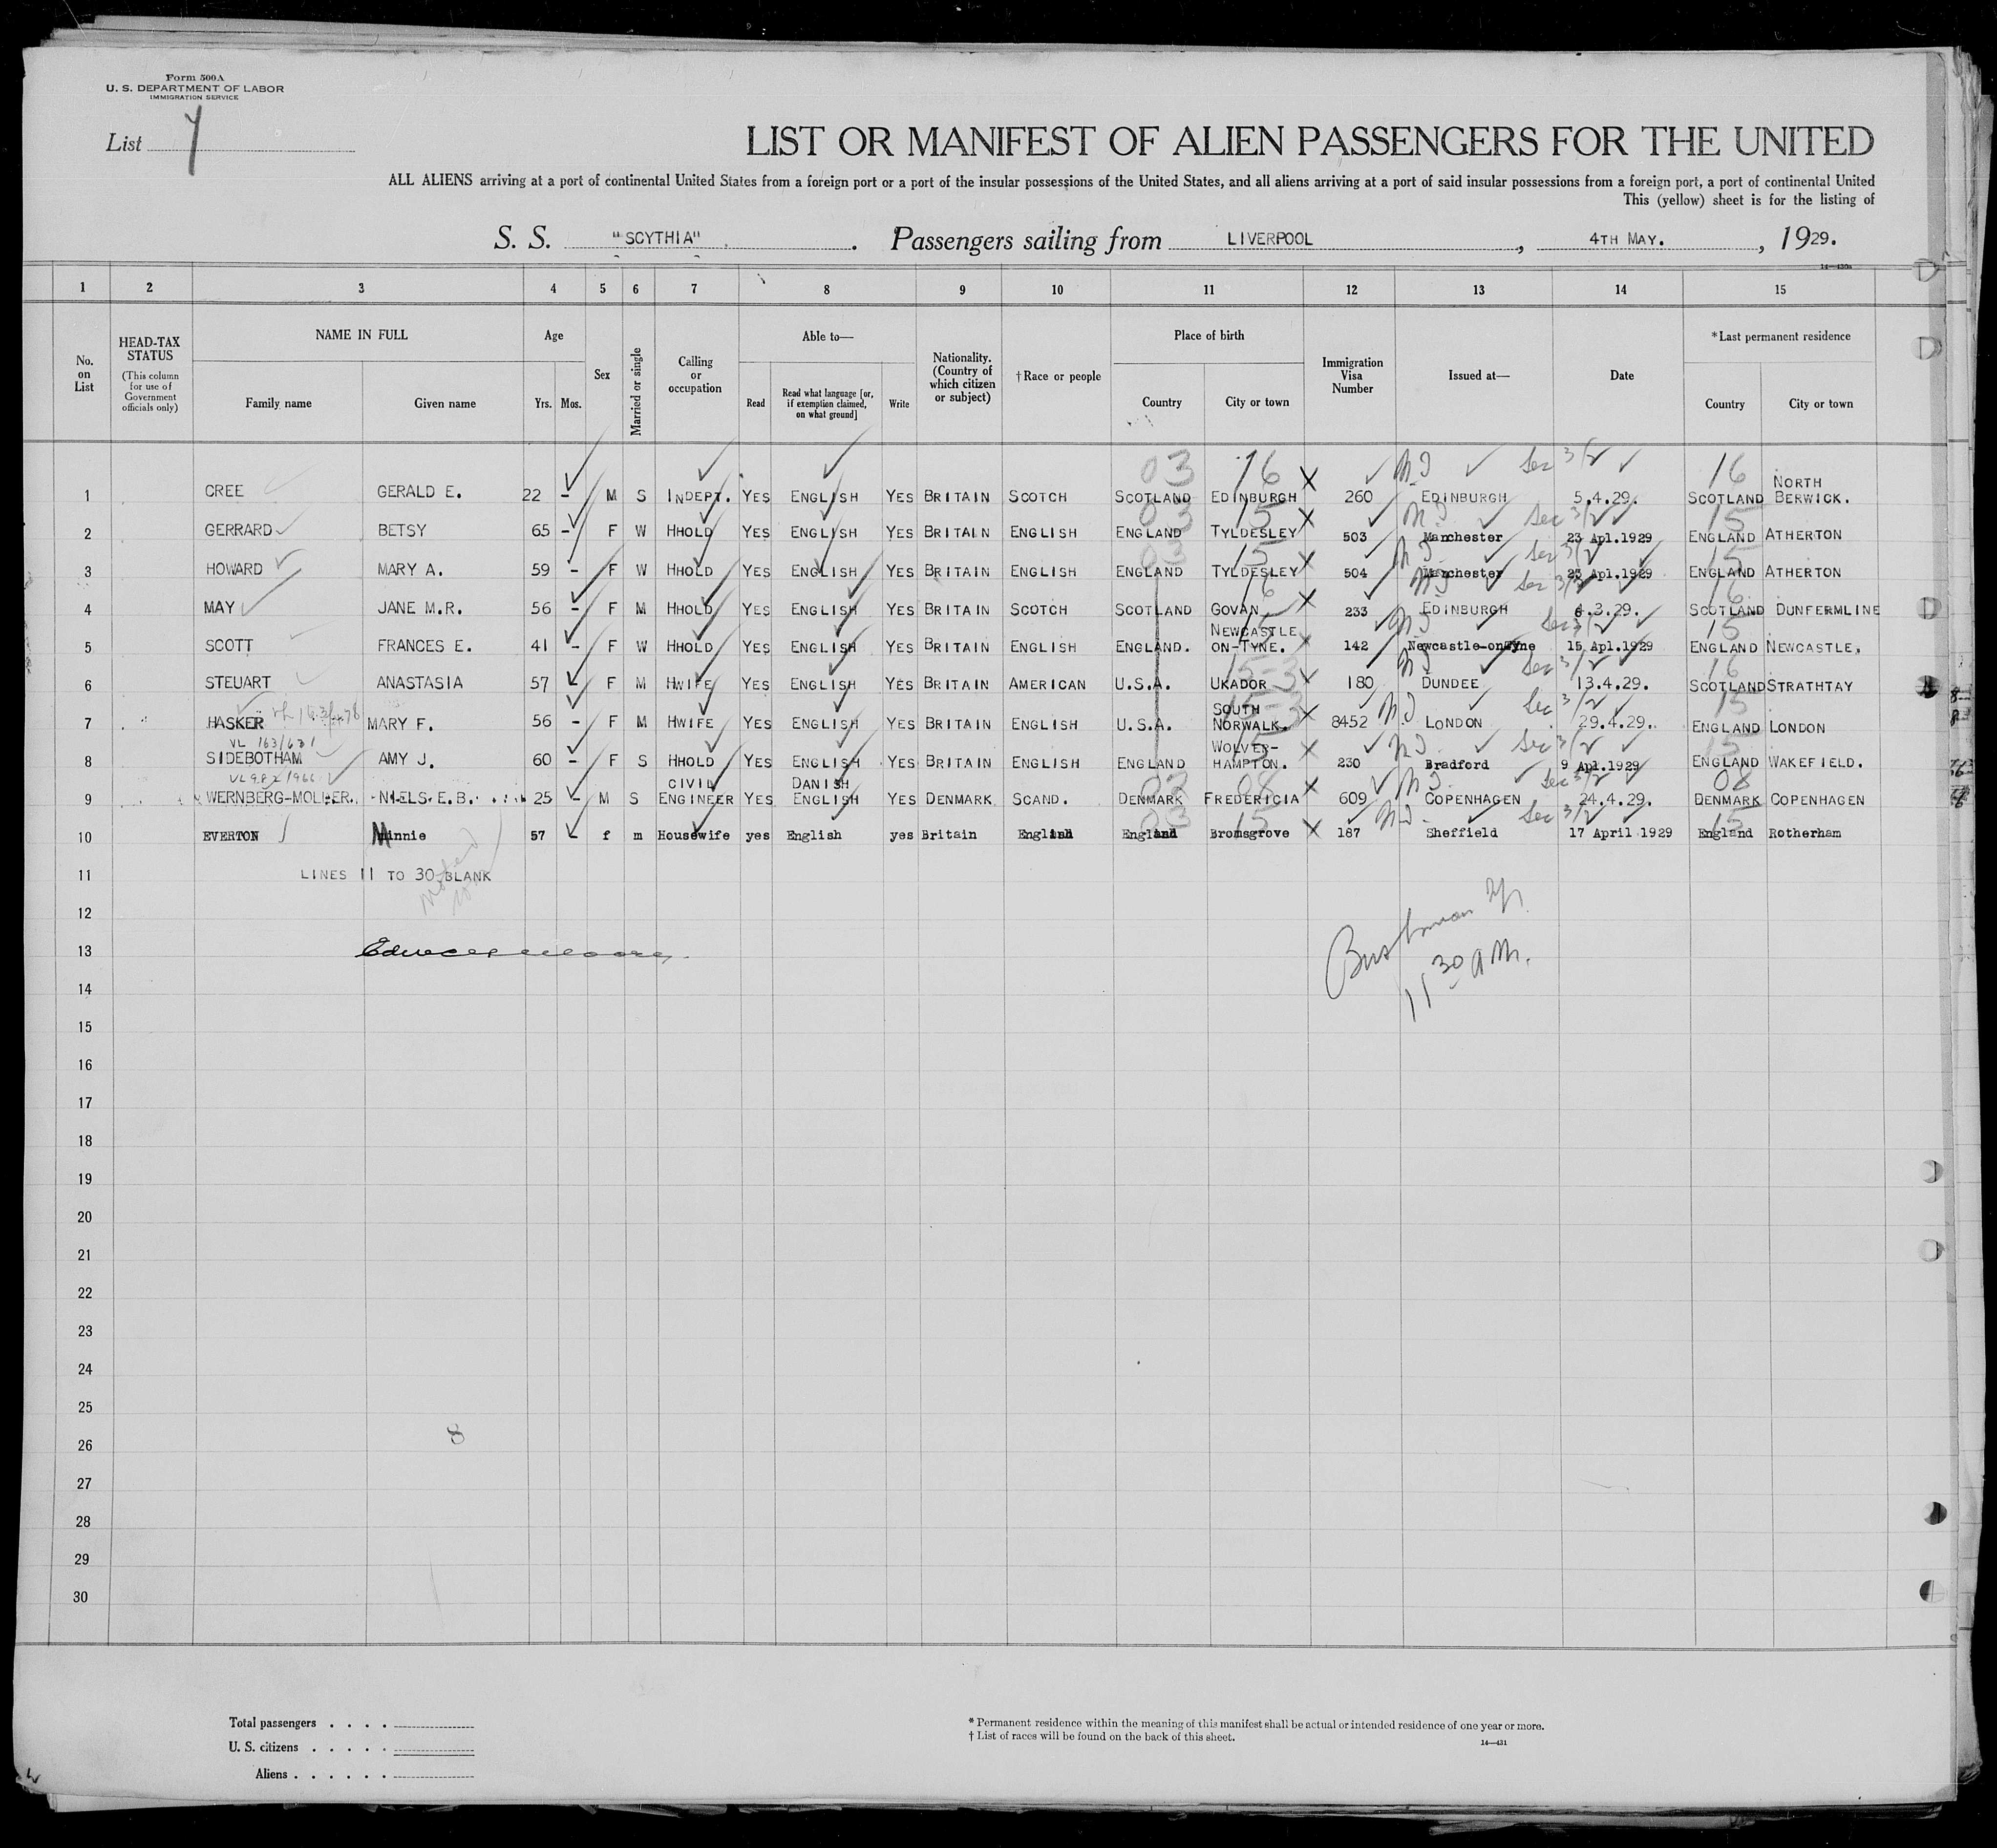 Form 500A
U. S. DEPARTMENT OF LABOR
IMMIGRATION SERVICE
List 7
LIST OR MANIFEST OF ALIEN PASSENGERS FOR THE UNITED
ALL ALIENS arriving at a port of continental United States from a foreign port or a port of the insular possessions of the United States, and all aliens arriving at a port of said insular possessions from a foreign port, a port of continental United
This (yellow) sheet is for the listing of
S. S. "SCYTHIA". Passengers sailing from LIVERPOOL, 4TH MAY., 1929.
14—430a
1 2 3 4 5 6 7 8 9 10 11 12 13 14 15
No. on List
HEAD-TAX STATUS (This column for use of Government officials only)
NAME IN FULL
Family name Given name
Age
Yrs. Mos.
Sex
Married or single
Calling or occupation
Able to—
Read Read what language [or, if exemption claimed, on what ground] Write
Nationality. (Country of which citizen or subject)
†Race or people
Place of birth
Country City or town
Immigration Visa Number
Issued at—
Date
*Last permanent residence
Country City or town
03 16 N.D Sec 3/2 16
1 CREE GERALD E. 22 - M S INDEPT. YES ENGLISH YES BRITAIN SCOTCH SCOTLAND EDINBURGH X 260 EDINBURGH 5.4.29. SCOTLAND NORTH BERWICK.
03 15 Sec 3/2 15
2 GERRARD BETSY 65 - F W HHOLD YES ENGLISH YES BRITAIN ENGLISH ENGLAND TYLDESLEY X 503 Manchester 23 Apl.1929 ENGLAND ATHERTON
03 15 Sec 3/2 15
3 HOWARD MARY A. 59 - F W HHOLD YES ENGLISH YES BRITAIN ENGLISH ENGLAND TYLDESLEY X 504 Manchester 23 Apl.1929 ENGLAND ATHERTON
16 Sec 3/2 16
4 MAY JANE M.R. 56 - F M HHOLD YES ENGLISH YES BRITAIN SCOTCH SCOTLAND GOVAN X 233 EDINBURGH .3.29. SCOTLAND DUNFERMLINE
15 Sec 3/2 15
5 SCOTT FRANCES E. 41 - F W HHOLD YES ENGLISH YES BRITAIN ENGLISH ENGLAND. NEWCASTLE ON-TYNE. X 142 Newcastle-onTyne 15 Apl.1929 ENGLAND NEWCASTLE.
15-3 Sec 3/2 16
6 STEUART ANASTASIA 57 - F M HWIFE YES ENGLISH YES BRITAIN AMERICAN U.S.A. UKADOR X 180 DUNDEE 13.4.29. SCOTLAND STRATHTAY
15-3 Sec 3/2 15
7 HASKER MARY F. 56 - F M HWIFE YES ENGLISH YES BRITAIN ENGLISH U.S.A. SOUTH NORWALK. X 8452 LONDON 29.4.29. ENGLAND LONDON
VL 163/631 Sec 3/2 15
8 SIDEBOTHAM AMY J. 60 - F S HHOLD YES ENGLISH YES BRITAIN ENGLISH ENGLAND WOLVER-HAMPTON. X 230 Bradford 9 Apl.1929 ENGLAND WAKEFIELD.
02 08 Sec 3/2 08
9 WERNBERG-MOLLER. NIELS.E.B. 25 - M S CIVIL ENGINEER YES DANISH ENGLISH YES DENMARK SCAND. DENMARK FREDERICIA X 609 COPENHAGEN 24.4.29. DENMARK COPENHAGEN
03 15 Sec 3/2 15
10 EVERTON Minnie 57 f m Housewife yes English yes Britain English England Bromsgrove X 187 Sheffield 17 April 1929 England Rotherham
11 LINES 11 TO 30 BLANK
12
13
14
11 30 AM.
15
16
17
18
19
20
21
22
23
24
25
8
26
27
28
29
30
Total passengers . . . .
U. S. citizens . . . . .
Aliens . . . . . .
* Permanent residence within the meaning of this manifest shall be actual or intended residence of one year or more.
† List of races will be found on the back of this sheet.
14—431